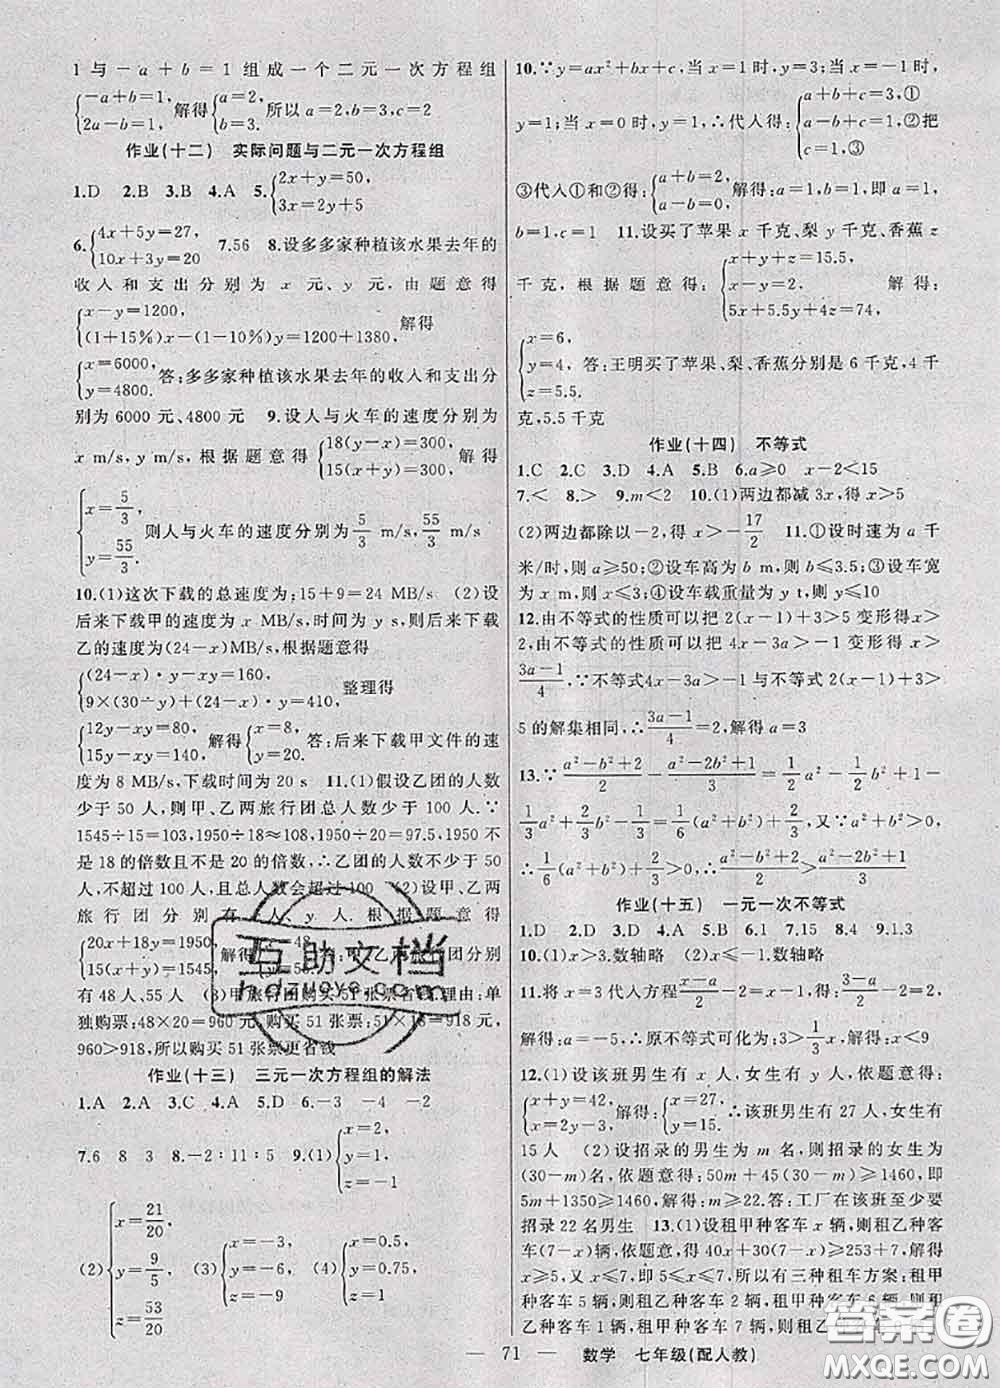 1与-a+b=1组成一个二元一次方程组
{-a+b=1, 2a-b=1. 解得{a=2, b=3. 所以a=2,b=3,c=2
作业(十二) 实际问题与二元一次方程组
1.D 2.B 3.B 4.A 5.{2x+y=50, 3x=2y+5
6.{4x+5y=27, 10x+3y=20 7.56 8.设多多家种植该水果去年的
收入和支出分别为 x 元、y 元,由题意得
{x-y=1200, (1+15%)x-(1-10%)y=1200+1380. 解得
{x=6000, y=4800. 答:多多家种植该水果去年的收入和支出分
别为6000元、4800元 9.设人与火车的速度分别为
x m/s,y m/s,根据题意得{18(y-x)=300, 15(x+y)=300.
{x=5/3, y=55/3. 则人与火车的速度分别为5/3 m/s,55/3 m/s
10.(1)这次下载的总速度为:15+9=24 MB/s (2)设
后来下载甲的速度为x MB/s,时间为y s,则后来下载
乙的速度为(24-x)MB/s,根据题意得
{(24-x)·y-xy=160, 9×(30÷y)+(24-x)·y=410. 整理得
{12y-xy=80, 15y-xy=140. 解得{x=8, y=20. 答:后来下载甲文件的速
度为8 MB/s,下载时间为20 s 11.(1)假设乙团的人数
少于50人,则甲、乙两旅行团总人数少于100人.∵
1545÷15=103,1950÷18≈108,1950÷20=97.5,1950
不是18的倍数且不是20的倍数,∴乙团的人数不少于50
人,不超过100人,且总人数会超过100人 (2)设甲、乙两
旅行团分别有 x 人、y 人.根据题意得
{20x+18y=1950, 15(x+y)=1545. 解得 48,
有48人、55人 (3)甲旅行团购买51张票省钱.理由:单
独购票:48×20=960元,购买51张票:51×18=918元,
960>918,所以购买51张票更省钱
作业(十三) 三元一次方程组的解法
1.A 2.A 3.C 4.A 5.D 6.-3 -4 -2
7.6 8 3 8.-2:11:5 9.(1){x=2, y=1, z=-1
(2){x=21/20, y=9/5, z=53/20 (3){x=-3, y=-6, z=-9 (4){x=0.5, y=0.75, z=1
10.∵y=ax²+bx+c,当x=1时,y=3;当x=-1时,
y=1;当x=0时,y=1,∴代入得:{a+b+c=3,① a-b+c=1,②把 c=1,③
③代入①和②得:{a+b=2, a-b=0. 解得:a=1,b=1,即a=1,
b=1,c=1 11.设买了苹果x千克、梨y千克、香蕉z
千克,根据题意得{x+y+z=15.5, x-y=2, 5x+5.5y+4z=74,
{x=6, y=4, z=5.5. 答:王明买了苹果、梨、香蕉分别是6千克,4千
克,5.5千克
作业(十四) 不等式
1.C 2.C 3.D 4.A 5.B 6.a≥0 x-2<15
7.< 8.> 9.m<2 10.(1)两边都减3x,得x>5
(2)两边都除以-2,得x>-17/2 11.①设时速为a千
米/时,则a≥50;②设车高为b m,则b≤3.5;③设车宽
为x m,则x≤3;④设车载重量为y t,则y≤10
12.由不等式的性质可以把2(x-1)+3>5变形得x>
2,由不等式的性质可以把4x-3a>-1变形得x>
(3a-1)/4,∵不等式4x-3a>-1与不等式2(x-1)+3>
5的解集相同,∴(3a-1)/4=2,解得a=3
13.∵(a²-b²+2)/2-(a²-2b²+1)/3=1/2a²-1/2b²+1-
1/3a²+2/3b²-1/3=1/6(a²+b²)+2/3,又∵a²+b²≥0,
∴1/6(a²+b²)+2/3>0,∴(a²-b²+2)/2>(a²-2b²+1)/3
作业(十五) 一元一次不等式
1.D 2.B 3.D 4.A 5.B 6.1 7.15 8.4 9.1.3
10.(1)x>3.数轴略 (2)x≤-1.数轴略
11.将x=3代入方程(x-a)/2-2=x-1,得:(3-a)/2-2=2,
解得:a=-5,∴原不等式可化为:3>1/3x,解得:x<9
12.(1)设该班男生有x人,女生有y人,依题意得:
{x+y=42, x=2y-3. 解得:{x=27, y=15. ∴该班男生有27人,女生有
15人 (2)设招录的男生为m名,则招录的女生为
(30-m)名,依题意得:50m+45(30-m)≥1460,即
5m+1350≥1460,解得:m≥22.答:工厂在该班至少要
招录22名男生 13.(1)设租甲种客车x辆,则租乙种客
车(7-x)辆,依题意,得40x+30(7-x)≥253+7,解得
x≥5,又x≤7,即5≤x≤7,所以有三种租车方案:租甲
种客车5辆,则租乙种客车2辆,租甲种客车6辆,则租
乙种客车1辆,租甲种客车7辆,则租乙
— 71 — 数学 七年级(配人教)
互助文档
hdzuoye.com
答案圈
MXQE.COM